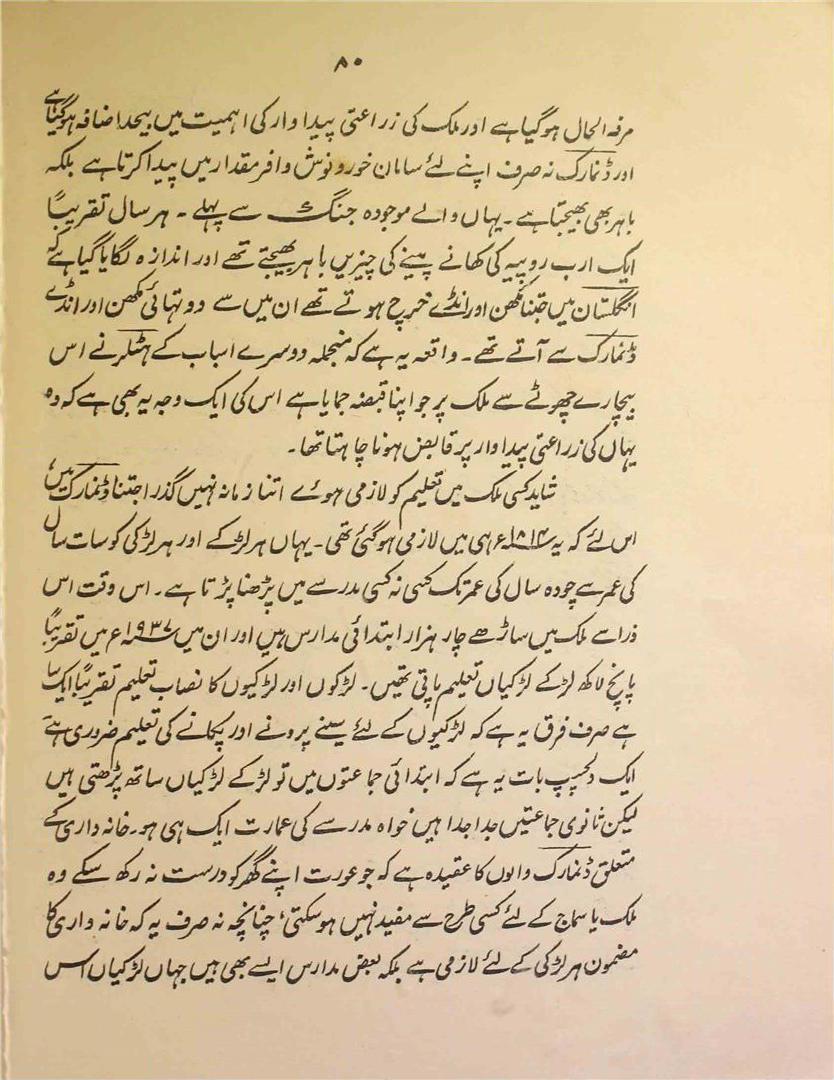 ۸۰
مرفہ الحال ہوگیا ہے اور ملک کی زراعتی پیداوار کی اہمیت میں بیحد اضافہ ہوگیا ہے
اور ڈنمارک نہ صرف اپنے لئے سامان خورونوش وافر مقدار میں پیدا کرتا ہے بلکہ
باہر بھی بھیجتا ہے۔ یہاں والے موجودہ جنگ سے پہلے۔ ہر سال تقریباً
ایک ارب روپیہ کی کھانے پینے کی چیزیں باہر بھیجتے تھے اور اندازہ لگایا گیا ہے کہ
انگلستان میں جتنا مکھن اور انڈے خرچ ہوتے تھے ان میں سے دو تہائی مکھن اور انڈے
ڈنمارک سے آتے تھے۔ واقعہ یہ ہے کہ منجملہ دوسرے اسباب کے ہٹلر نے اس
بیچارے چھوٹے سے ملک پر جو اپنا قبضہ جمایا ہے اس کی ایک وجہ یہ بھی ہے کہ وہ
یہاں کی زراعتی پیداوار پر قابض ہونا چاہتا تھا۔
شاید کسی ملک میں تعلیم کو لازمی ہوئے اتنا زمانہ نہیں گذرا جتنا ڈنمارک میں،
اس لئے کہ یہ ۱۸۱۴ء ہی میں لازمی ہوگئی تھی۔ یہاں ہر لڑکے اور ہر لڑکی کو سات سال
کی عمر سے چودہ سال کی عمر تک کسی نہ کسی مدرسے میں پڑھنا پڑتا ہے۔ اس وقت اس
ذرا سے ملک میں ساڑھے چار ہزار ابتدائی مدارس ہیں اور ان میں ۱۹۳۷ء میں تقریباً
پانچ لاکھ لڑکے لڑکیاں تعلیم پاتی تھیں۔ لڑکوں اور لڑکیوں کا نصاب تعلیم تقریباً ایک سا
ہے صرف فرق یہ ہے کہ لڑکیوں کے لئے سینے پرونے اور پکانے کی تعلیم ضروری ہے
ایک دلچسپ بات یہ ہے کہ ابتدائی جماعتوں میں تو لڑکے لڑکیاں ساتھ پڑھتی ہیں
لیکن ثانوی جماعتیں جدا جدا ہیں خواہ مدرسے کی عمارت ایک ہی ہو۔ خانہ داری کے
متعلق ڈنمارک والوں کا عقیدہ ہے کہ جو عورت اپنے گھر کو درست نہ رکھ سکے وہ
ملک یا سماج کے لئے کسی طرح سے مفید نہیں ہوسکتی، چنانچہ نہ صرف یہ کہ خانہ داری کا
مضمون ہر لڑکی کے لئے لازمی ہے بلکہ بعض مدارس ایسے بھی ہیں جہاں لڑکیاں اس